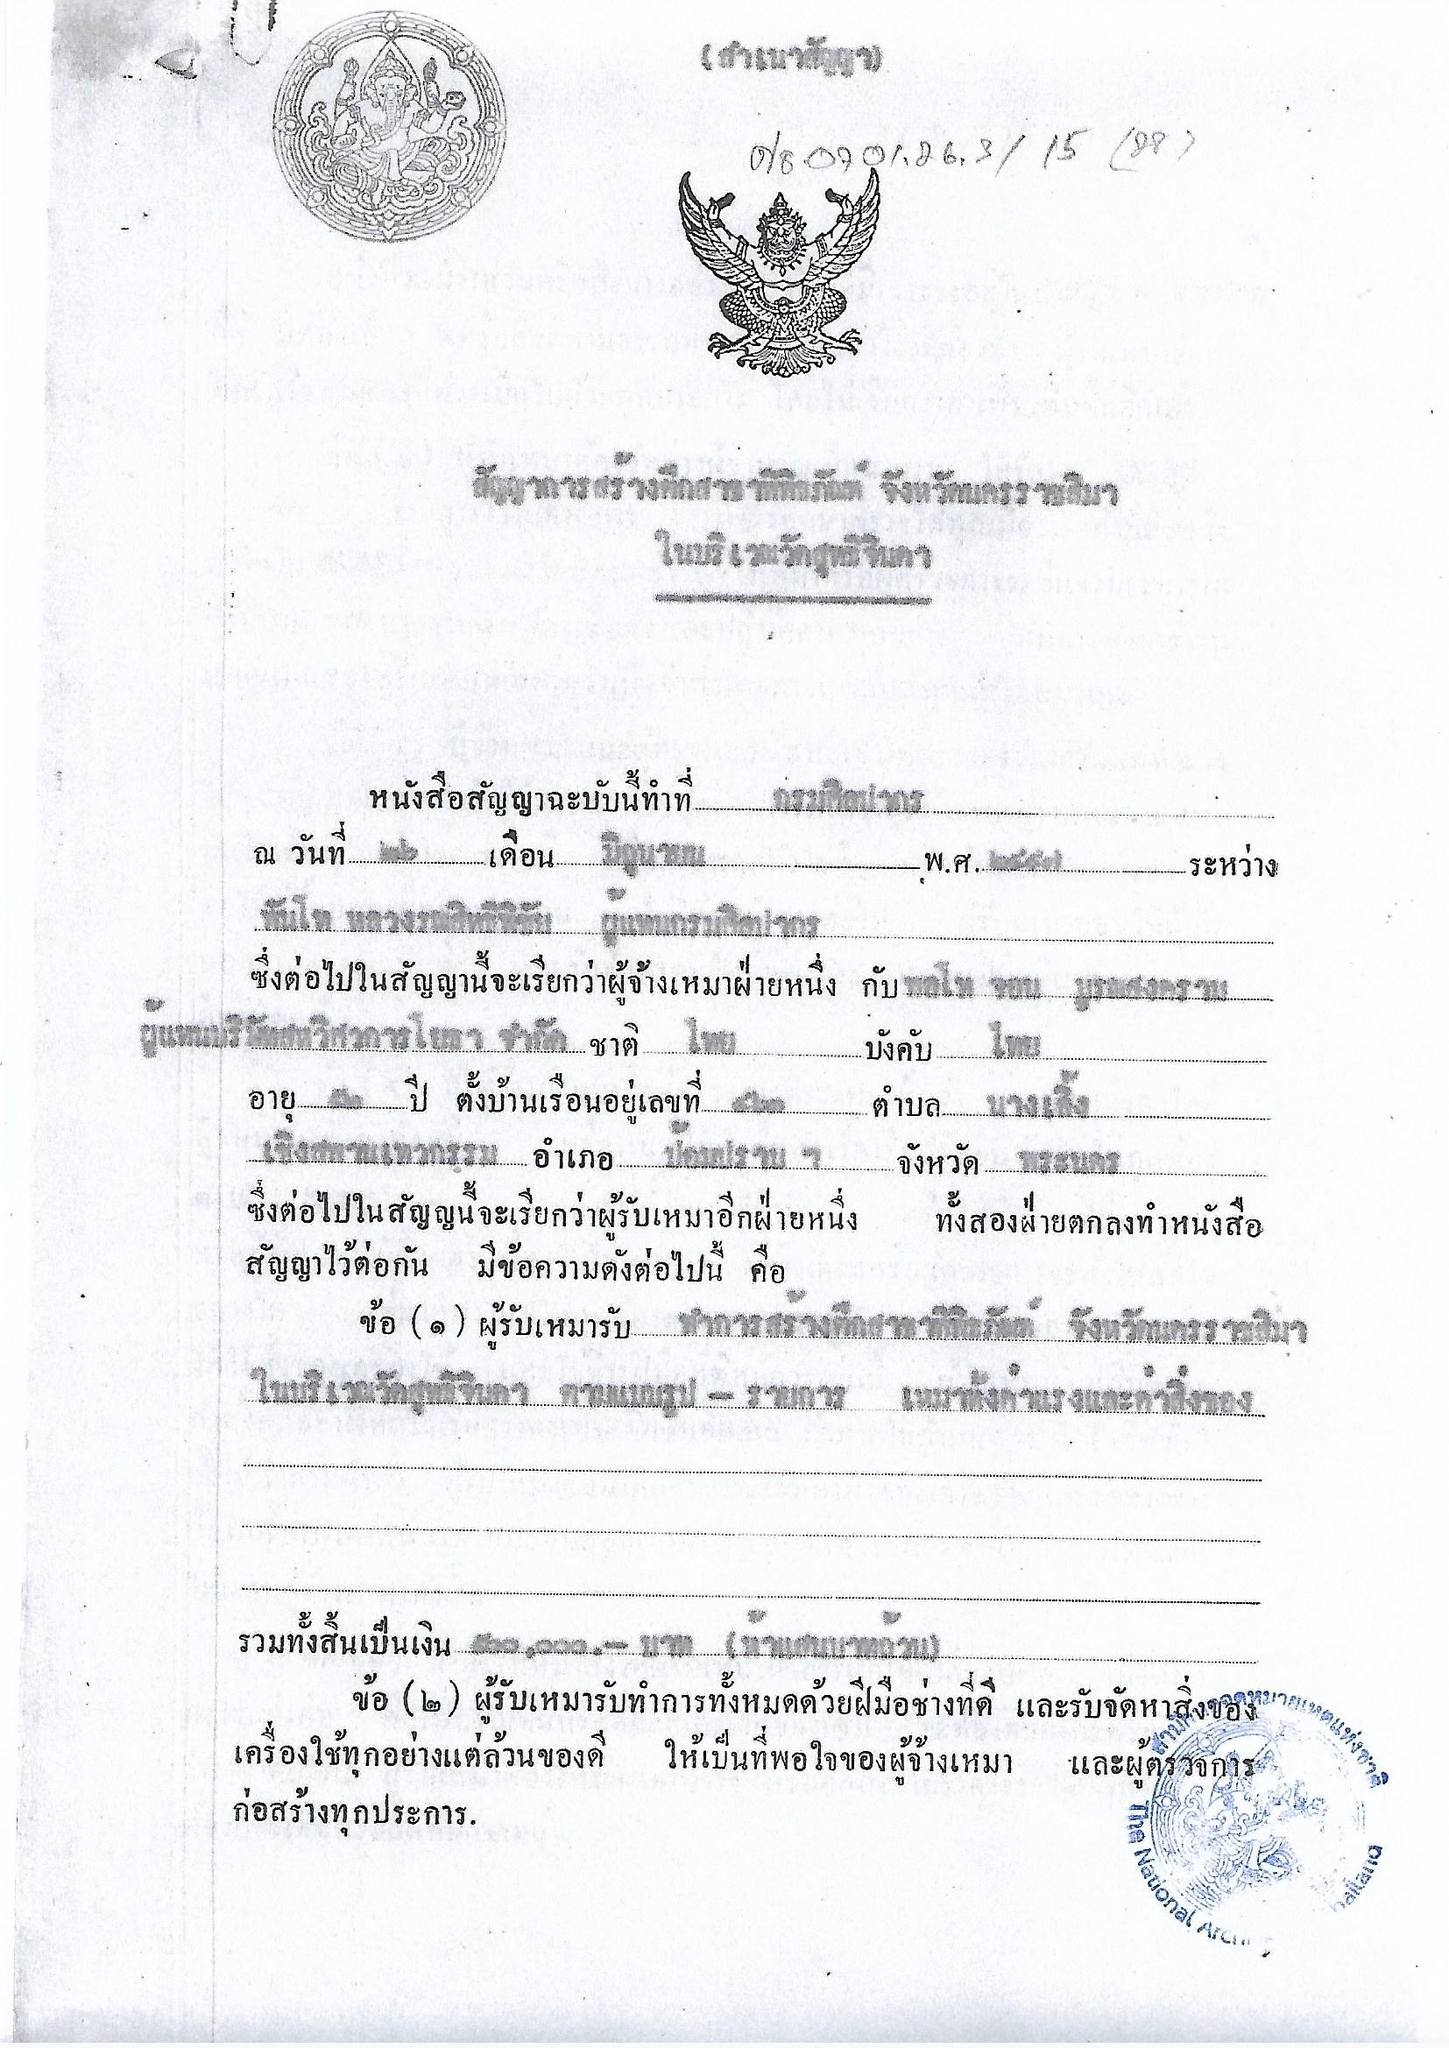 (สำเนาสัญญา)
สัญญาการสร้างตึกสาขาพิพิธภัณฑ์ จังหวัดนครราชสีมา
ในบริเวณวัดสุทธิจินดา
หนังสือสัญญาฉะบับนี้ทำที่ กรมศิลปากร
ณ วันที่ ๒๖ เดือน มิถุนายน พ.ศ. ๒๔๙๗ ระหว่าง
พันโท หลวงรณสิทธิพิชัย ผู้แทนกรมศิลปากร
ซึ่งต่อไปในสัญญานี้จะเรียกว่าผู้จ้างเหมาฝ่ายหนึ่ง กับ พลโท จอน บูรณสงคราม
ผู้แทนบริษัทสหวิศวการโยธา จำกัด ชาติ ไทย บังคับ ไทย
อายุ ปี ตั้งบ้านเรือนอยู่เลขที่ ตำบล นางเลิ้ง
เชิงสพานเทวกรรม อำเภอ ป้อมปราบ ฯ จังหวัด พระนคร
ซึ่งต่อไปในสัญญนี้จะเรียกว่าผู้รับเหมาอีกฝ่ายหนึ่ง ทั้งสองฝ่ายตกลงทำหนังสือ
สัญญาไว้ต่อกัน มีข้อความดังต่อไปนี้ คือ
ข้อ (๑) ผู้รับเหมารับ ทำการสร้างตึกสาขาพิพิธภัณฑ์ จังหวัดนครราชสีมา
ในบริเวณวัดสุทธิจินดา ตามแบบรูป – รายการ เหมาทั้งค่าแรงและค่าสิ่งของ
รวมทั้งสิ้นเป็นเงิน ๕๐๐,๐๐๐.– บาท (ห้าแสนบาทถ้วน)
ข้อ (๒) ผู้รับเหมารับทำการทั้งหมดด้วยฝีมือช่างที่ดี และรับจัดหาสิ่งของ
เครื่องใช้ทุกอย่างแต่ล้วนของดี ให้เป็นที่พอใจของผู้จ้างเหมา และผู้ตรวจการ
ก่อสร้างทุกประการ.
The National